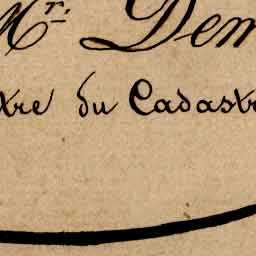 Mr. Dem
xtre du Cadastr